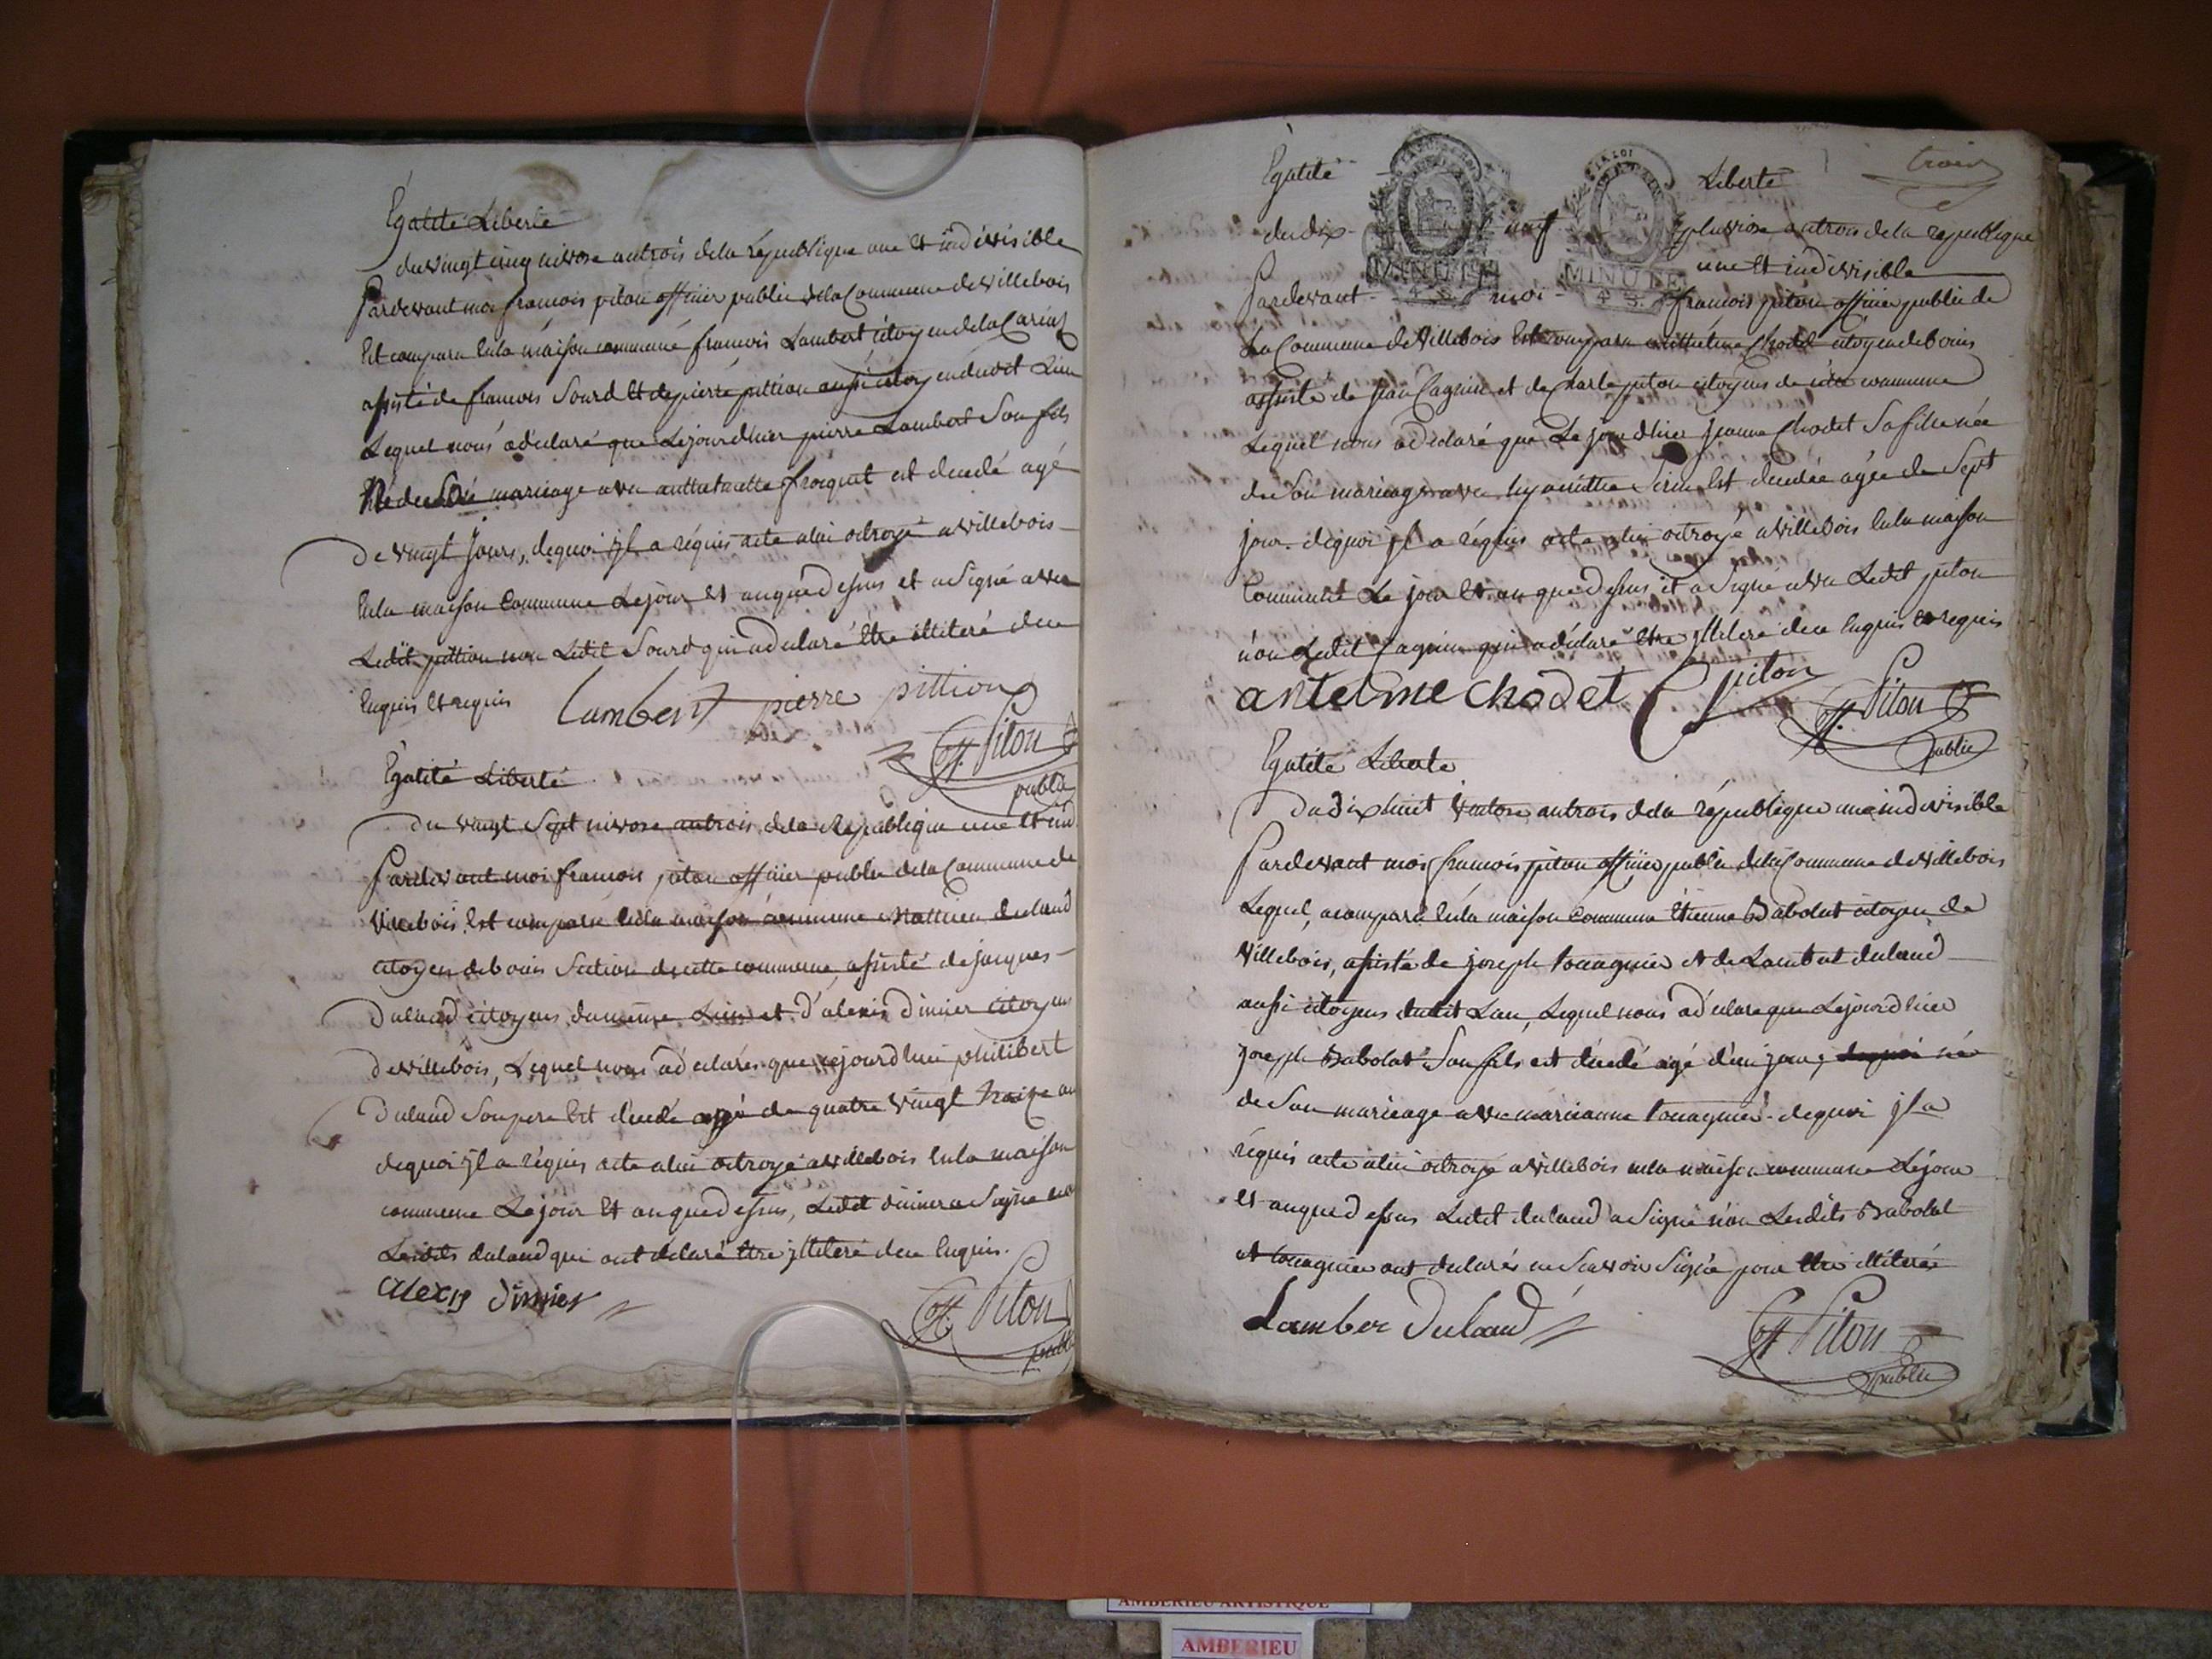 Egalité Liberté
du vingt cinq nivose an trois de la République une et indivisible
Pardevant moi francois piton officier public de la Commune de villebois
Est comparu en la maison commune francois Lambert citoyen de la
assisté de francois Sourd et de pierre pittion aussi citoyen dudit Lieu
Lequel nous a déclaré que Le jourdhier pierre Lambert Son fils
né de Son mariage avec froquet est décedé agé
de vingt jours, dequoi jl a réquis acte a lui octroyé a villebois
En la maison Commune Le jour et an que dessus et a Signé avec
Ledit pittion non Ledit Sourd qui a déclaré Etre illiteré de ce
Enquis et requis
Lambert pierre pittion
off. Piton
public
Egalité Liberté
Du vingt Sept nivose an trois de la République une et ind
Pardevant moi francois piton officier public de la Commune de
villebois Est comparu En la maison commune Mathieu dulaud
citoyen de bouis Section de cette commune, assisté de jacques
Dulaud citoyens du même Lieu et d'alexis dimier citoyens
de villebois, Lequel nous a déclarés que cejourdhui philibert
Dulaud Son pere Est décedé agé de quatre vingt traize an
dequoi jl a réquis acte a lui octroyé a villebois En la maison
commune Le jour Et an que dessus, Ledit dimier a Signé non
Lesdits dulaud qui ont déclaré Etre jlliteré de ce Enquis.
alexis dimier
off. Piton
public
trois
Egalité Liberté
du dix neuf pluviose an trois de la république
une et indivisible
MINUTE MINUTE
Pardevant moi francois piton officier public de
La Commune de Villebois Est comparu Chodet citoyen de bouis
assisté de jean Cagnin et de Charle piton citoyens de commune
Lequel nous a déclaré que Le jourdhier jeanne Chodet Sa fille née
de Son mariage avec Est décedée agée de Sept
jour. dequoi jl a réquis acte a lui octroyé a villebois En la maison
Commune Le jour Et an que dessus et a Signé avec Ledit piton
non Ledit Cagnin qui a déclaré Etre jlliteré de ce Enquis et requis
antelme chodet C piton
off. Piton
public
Egalité Liberté
Du dix huit Ventose an trois de la république une indivisible
Pardevant moi francois piton officier public de la Commune de villebois
Lequel, a comparu En la maison Commune Etienne Babolat citoyen de
Villebois, assisté de joseph et de Lambert dulaud
aussi citoyens dudit Lieu, Lequel nous a déclaré que Le jourdhier
joseph Babolat Son fils est décedé agé d'un jour, dequoi né
de Son mariage avec marianne dequoi jl a
réquis acte a lui octroyé a villebois en la maison commune Le jour
et an que dessus Ledit dulaud a Signé non Lesdits Babolat
et ont déclarés ne Scavoir Signé pour Etre illiterés
Lamber Dulaud
off. Piton
public
AMBERIEU ARTISTIQUE
AMBERIEU